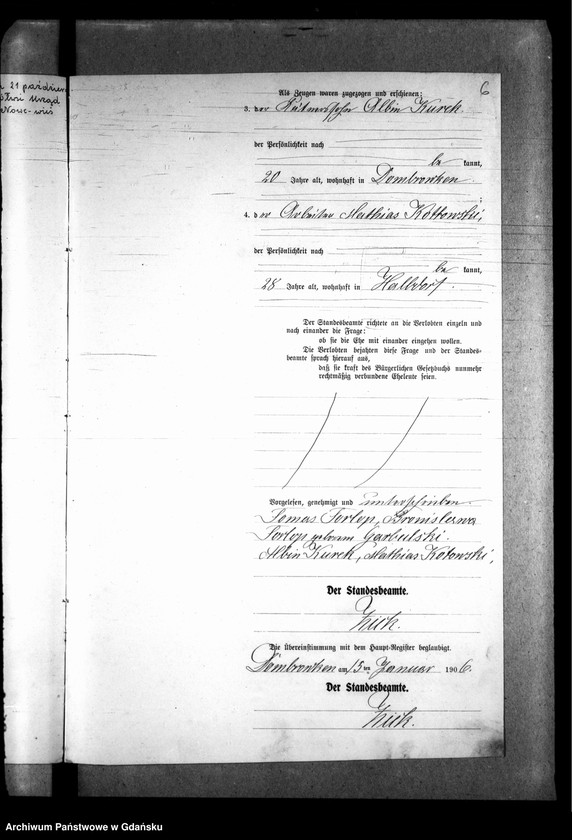 21 październ
Urząd
6
Als Zeugen waren zugezogen und erschienen:
3. der Albin Kurek
der Persönlichkeit nach
be kannt,
20 Jahre alt, wohnhaft in Dombrowken
4. der Arbeiter Mathias Kottowski,
der Persönlichkeit nach
be kannt,
28 Jahre alt, wohnhaft in Halbdorf.
Der Standesbeamte richtete an die Verlobten einzeln und
nach einander die Frage:
ob sie die Ehe mit einander eingehen wollen.
Die Verlobten bejahten diese Frage und der Standes-
beamte sprach hierauf aus,
daß sie kraft des Bürgerlichen Gesetzbuchs nunmehr
rechtmäßig verbundene Eheleute seien.
Vorgelesen, genehmigt und unterschrieben
Tomas Torlop, Bronislawa
Torlop geborene Garbulski.
Albin Kurek, Mathias Kotowski,
Der Standesbeamte.
Die Übereinstimmung mit dem Haupt-Register beglaubigt.
Dombrowken am 15ten Januar 1906.
Der Standesbeamte.
Archiwum Państwowe w Gdańsku